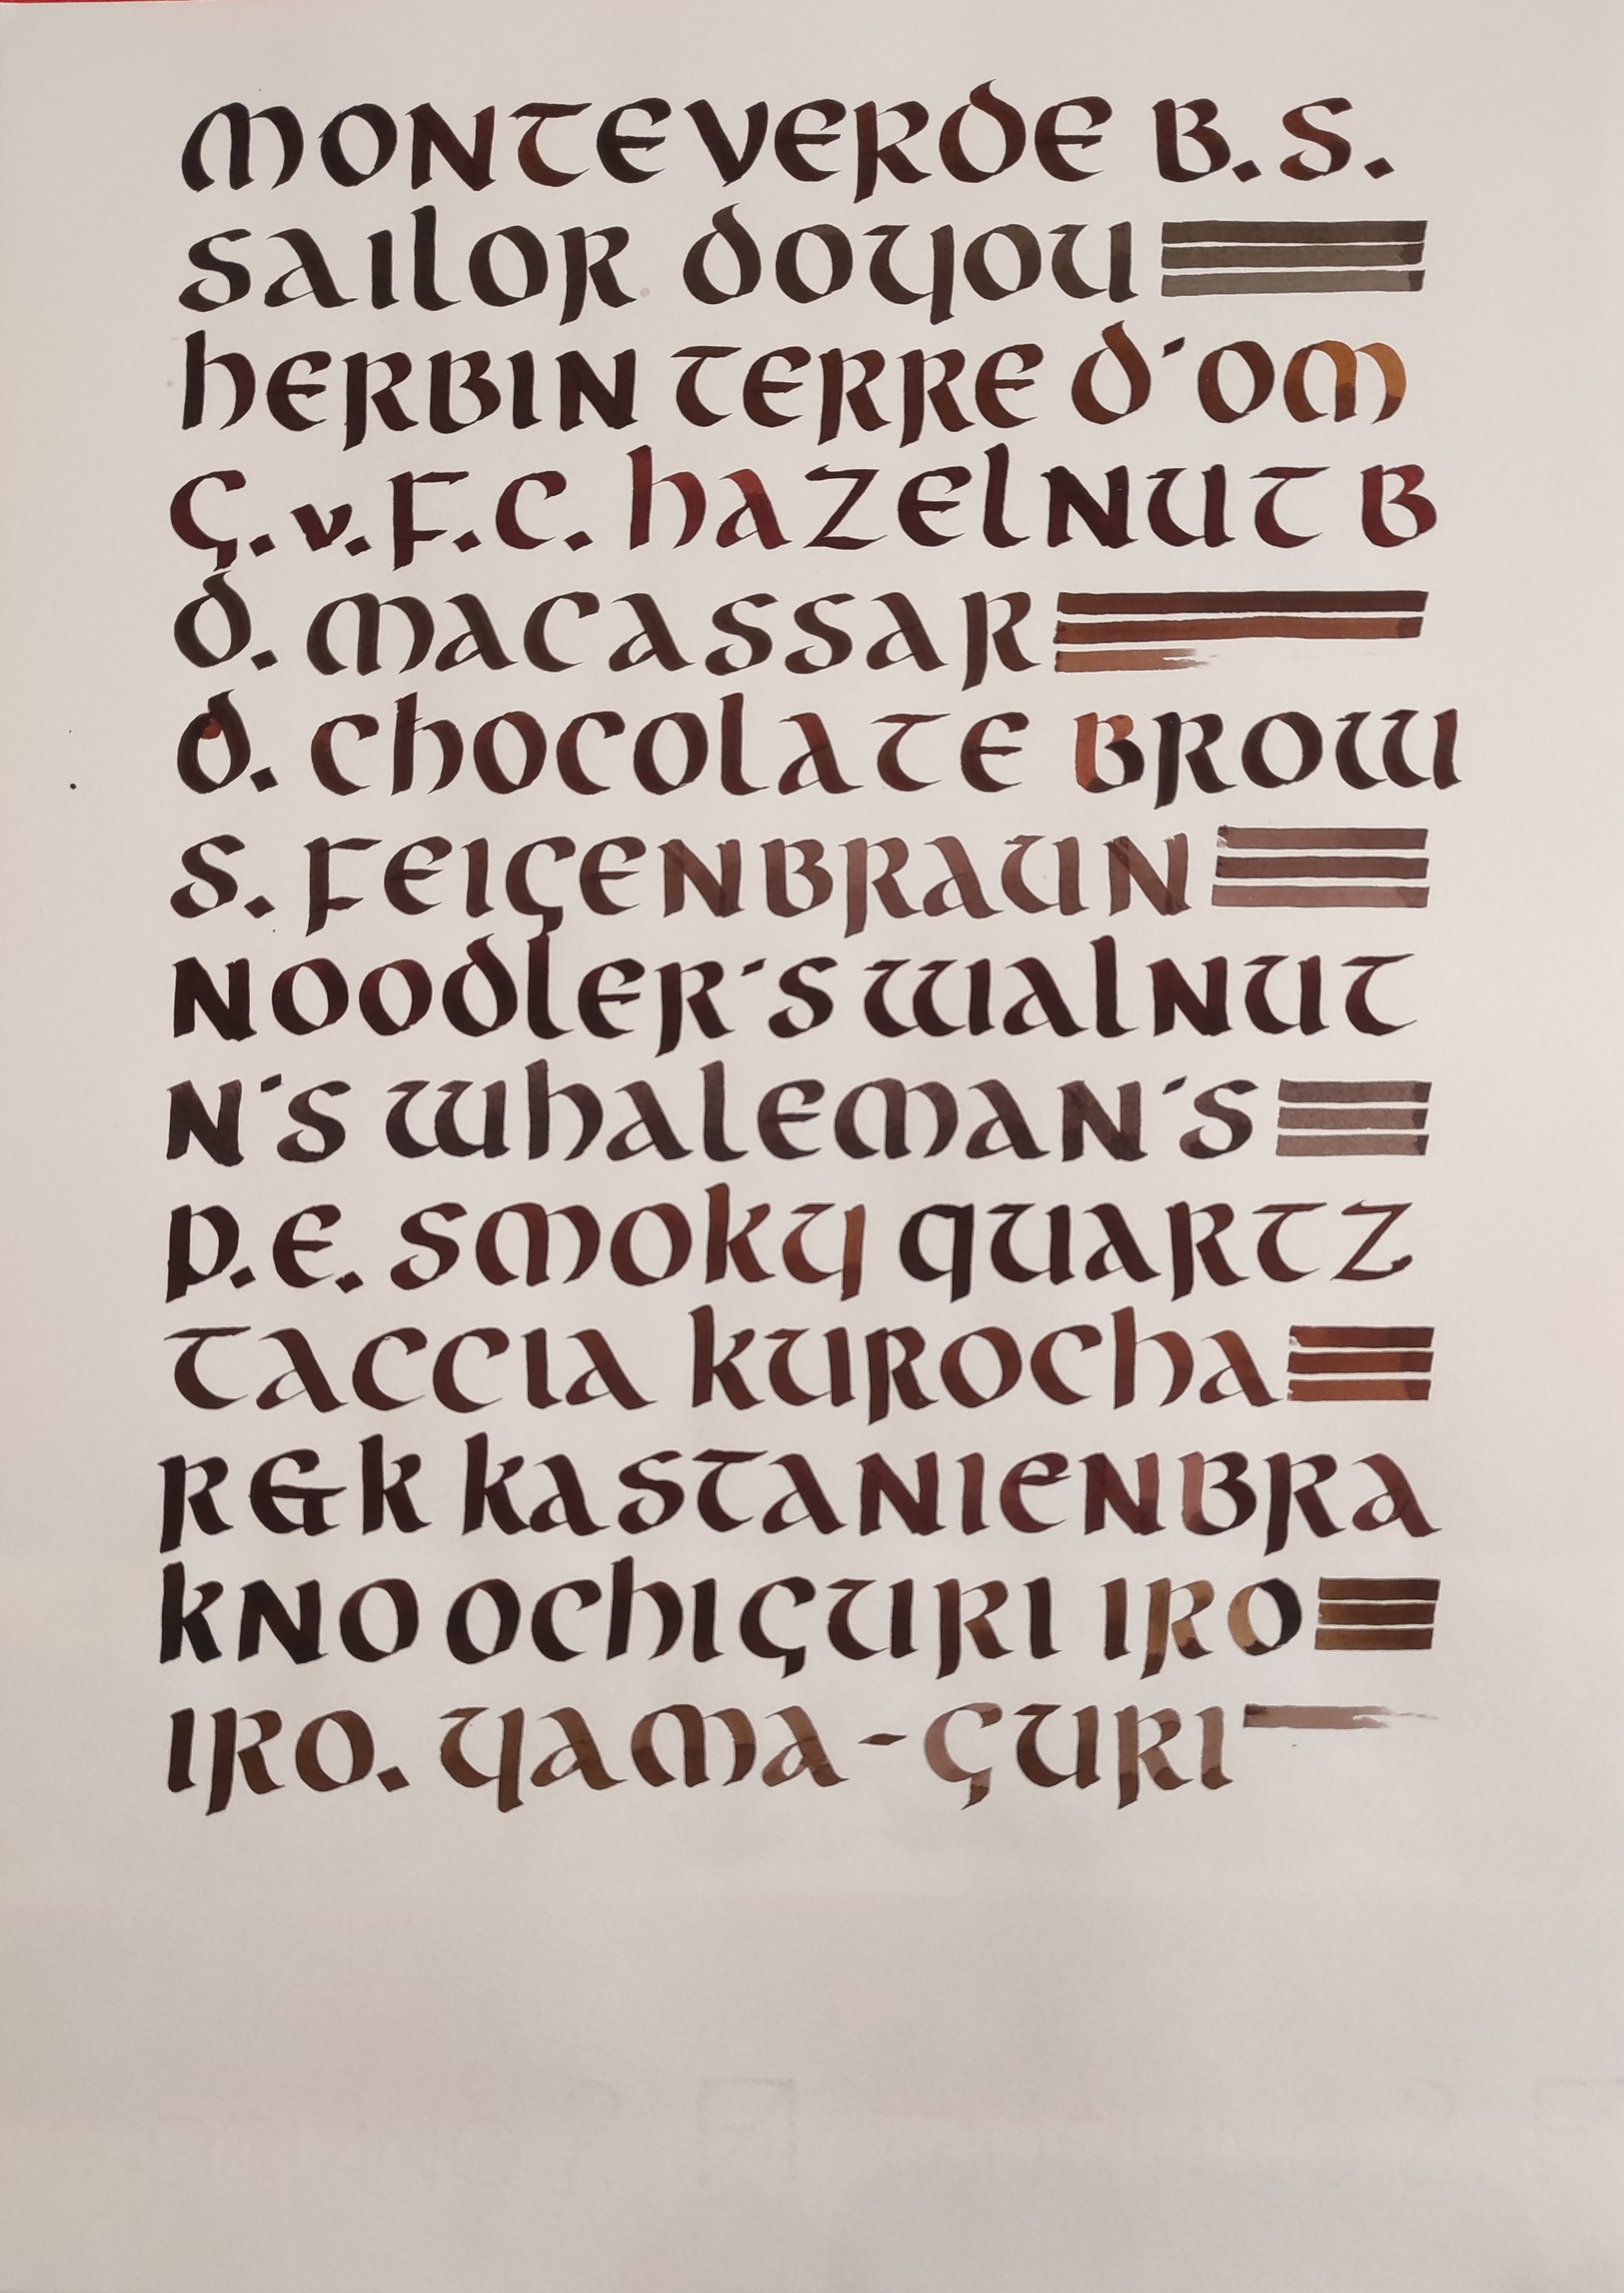 MONTEVERDE B.S.
SAILOR DOYOU
HERBIN TERRE D'OM
G.v.F.C. HAZELNUT B
D. MACASSAR
D. CHOCOLATE BROW
S. FEIGENBRAUN
NOODLER'S WALNUT
N'S WHALEMAN'S
P.E. SMOKY QUARTZ
TACCIA KUROCHA
R&K KASTANIENBRA
KNO OCHIGURI IRO
IRO. YAMA-GURI